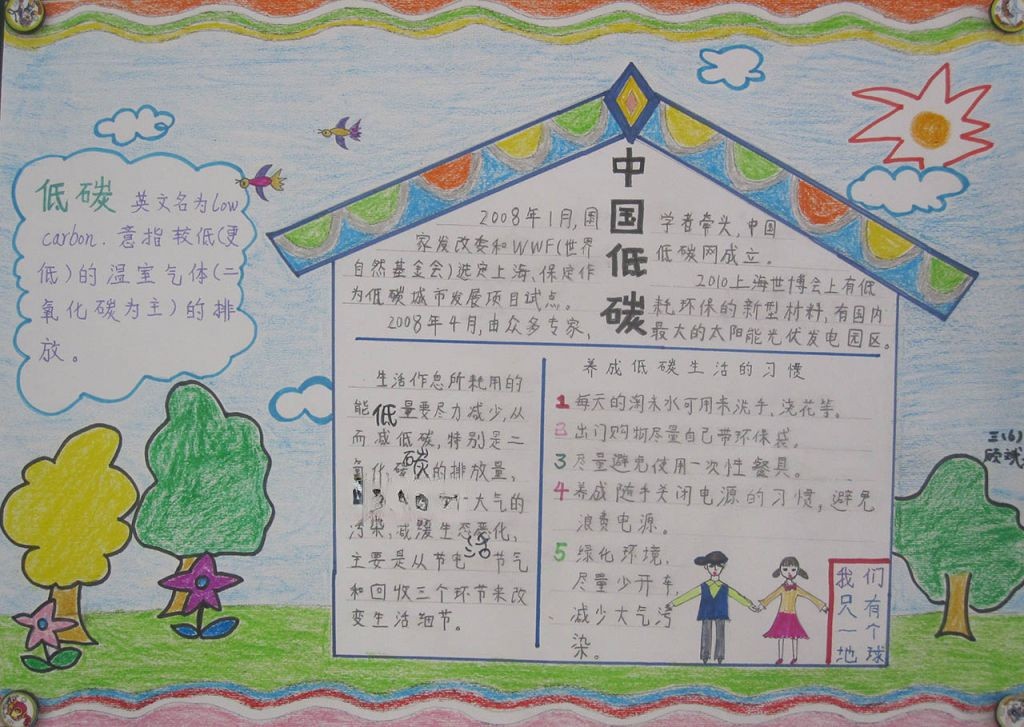 低碳 英文名为low
carbon. 意指较低(更
低)的温室气体(二
氧化碳为主)的排
放。
中国低碳
2008年1月,国
家发改委和WWF(世界
自然基金会)选定上海、保定作
为低碳城市发展项目试点。
2008年4月,由众多专家、
学者牵头,中国
低碳网成立。
2010上海世博会上有低
耗环保的新型材料,有国内
最大的太阳能光伏发电园区。
生活作息所耗用的
能量要尽力减少,从
而减低碳,特别是二
氧化碳的排放量,
大气的
污染,减缓生态恶化,
主要是从节电 节气
和回收三个环节来改
变生活细节。
低
碳
活
养成低碳生活的习惯
1 每天的淘米水可用来洗手、浇花等。
2 出门购物尽量自己带环保袋。
3 尽量避免使用一次性餐具。
4 养成随手关闭电源的习惯,避免
浪费电源。
5 绿化环境,
尽量少开车,
减少大气污
染。
我们
只有
一个
地球
三(6)